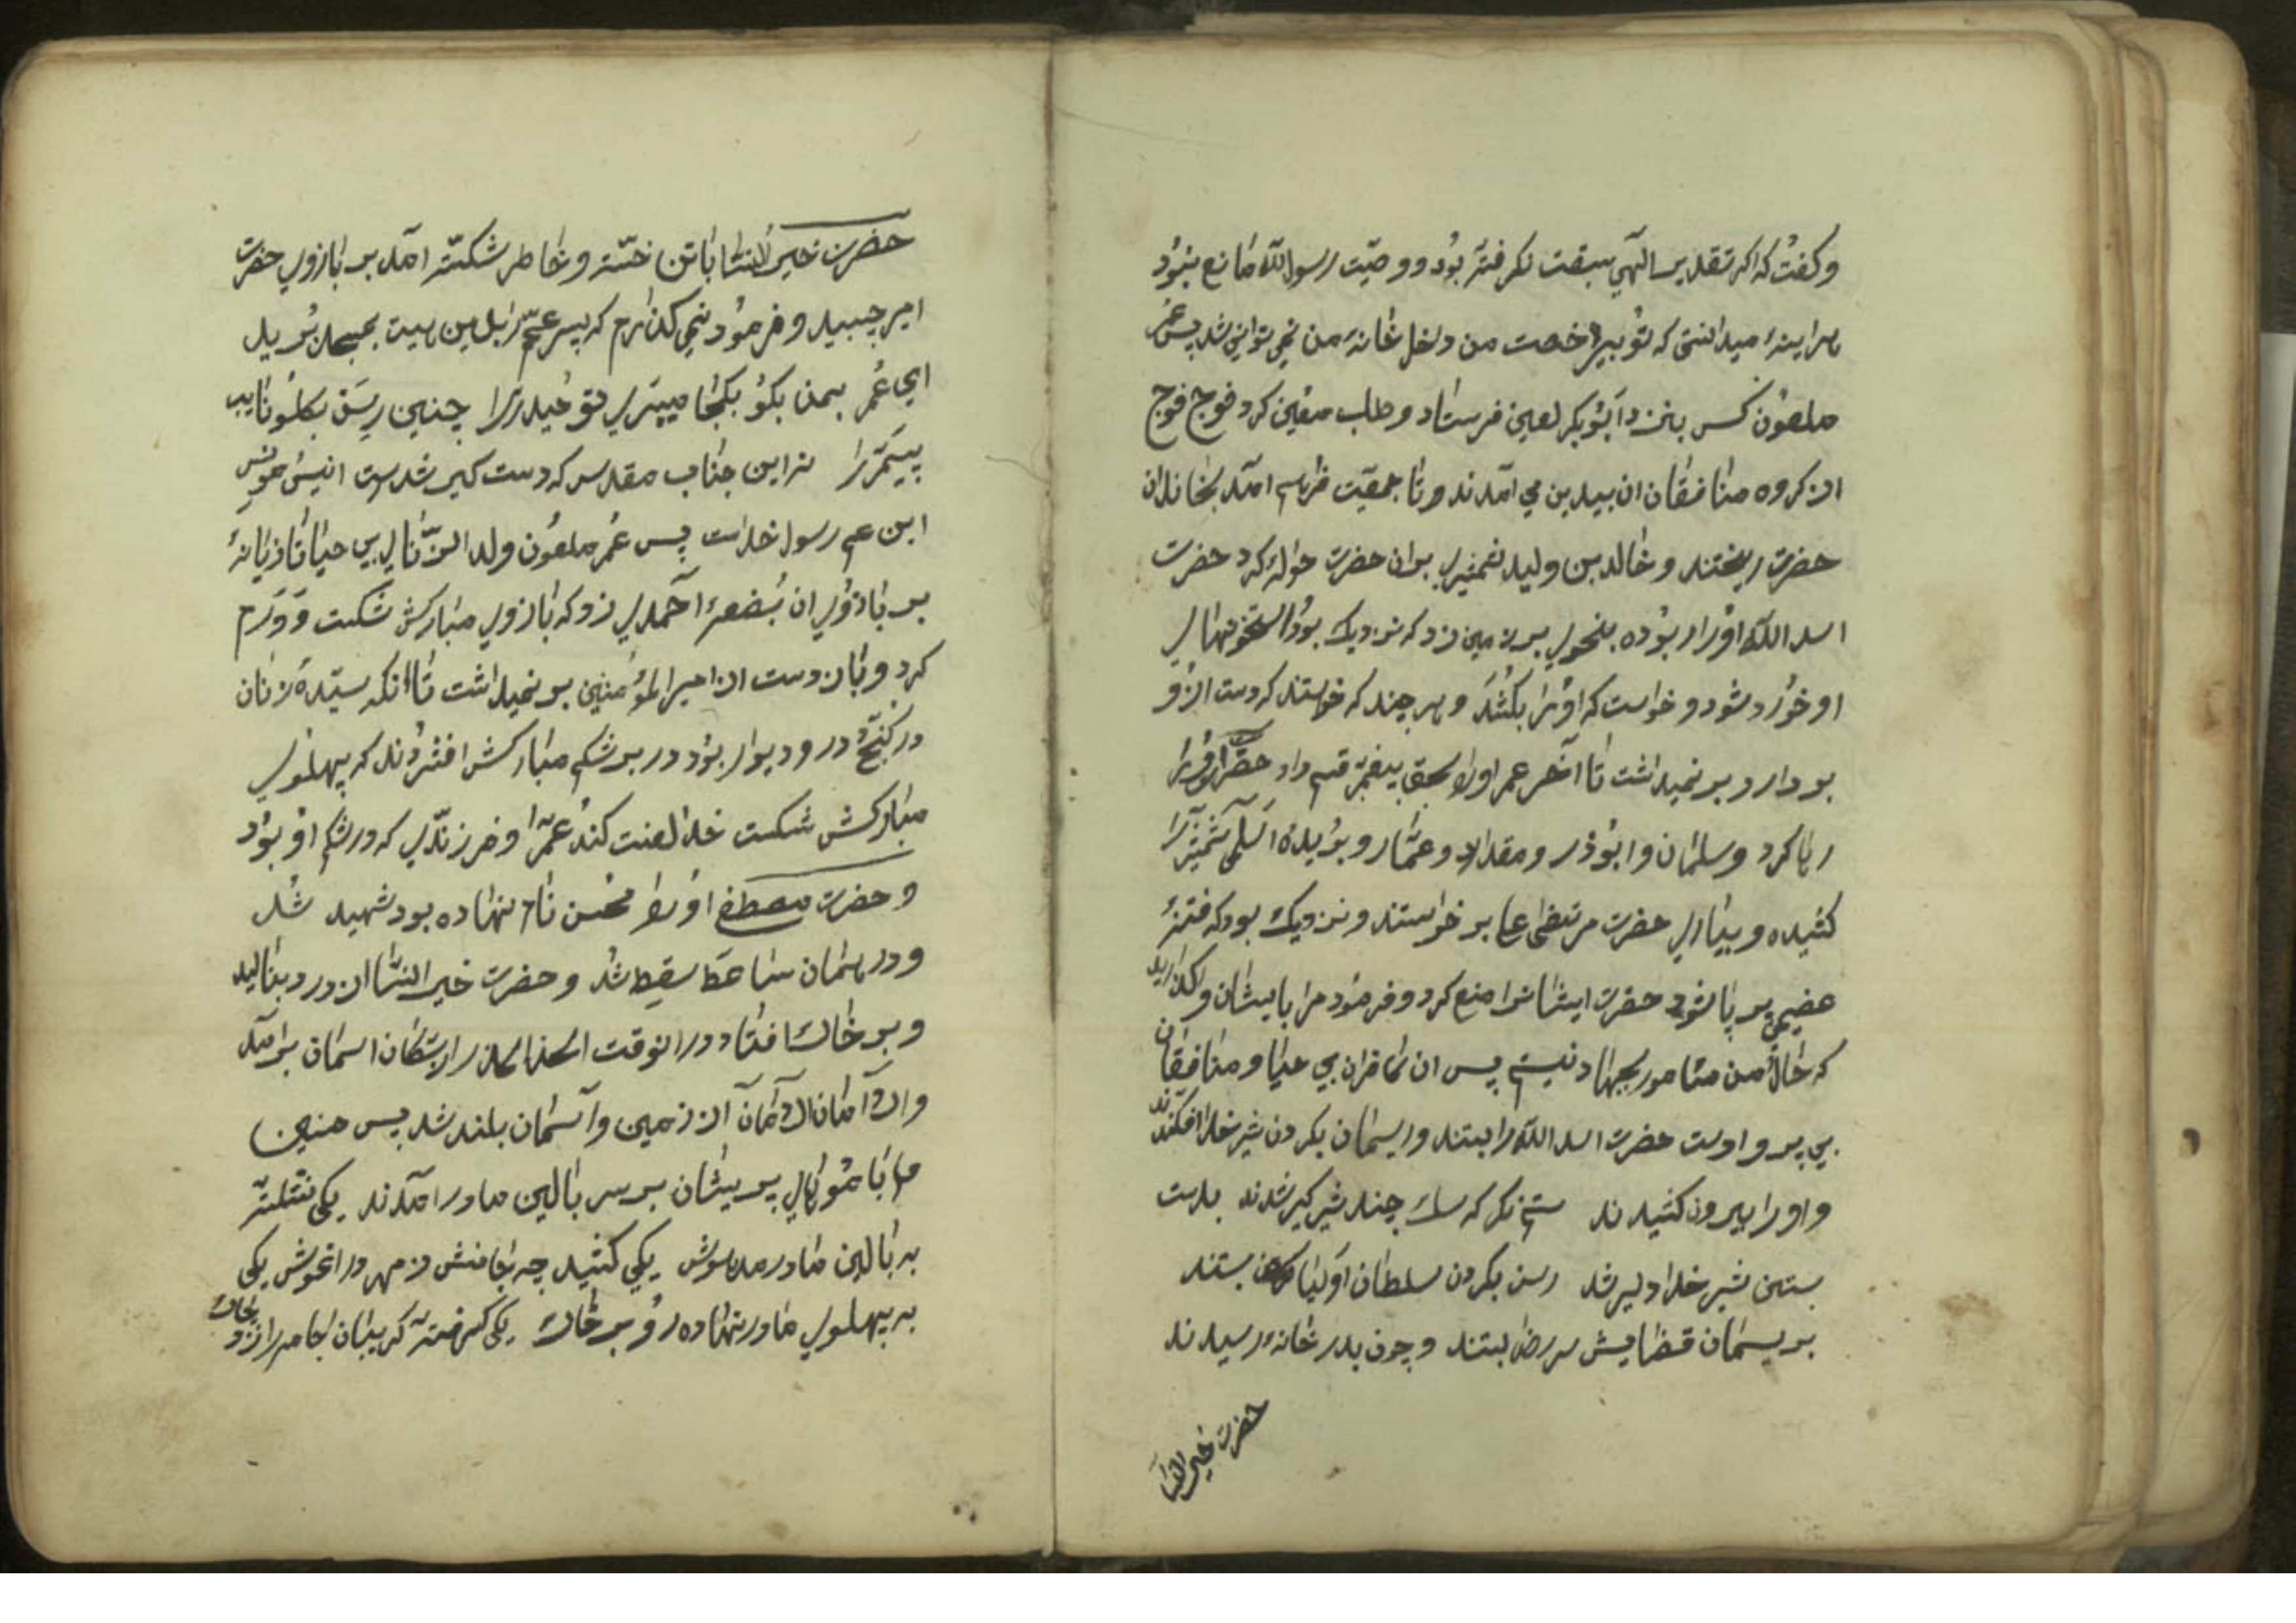 وکفت که اکر تقدیر الهی سبقت نکرفته بود و وصیت رسول الله مانع نبود
هراینه میدانستی که تو بی رخصت من داخل خانه من نمی توانی شد پس عمر
ملعون کس بنزد ابوبکر لعین فرستاد و طلب معین کرد فوج فوج
از کروه منافقان ان بیدین می امدند و تا جمعیت فراهم امد بخاندان
حضرت ریختند و خالد بن ولید شمشیری بران حضرت حواله کرد حضرت
اسد الله اورا ربوده بنحوی بر زمین زد که نزدیک بود استخونهای
او خورد شود و خواست که اورا بکشد و هر چند که خواستند که دست از و
بردارد بر نمیداشت تا آخر عمر اورا بحق پیغمبر قسم داد حضرت اورا
رها کرد و سلمان و ابوذر و مقداد و عمار و بریده اسلمی شمشیرها
کشیده و بیاری حضرت مرتضی ع بر خواستند و نزدیک بود که فتنه
عضیمی بر پا شود حضرت ایشانرا منع کرد و فرمود مرا بایشان واکذارید
که حالا من مامور بجهاد نیستم پس ان کافران بی حیا و منافقان
بی پروا دست حضرت اسد الله را بستند و ریسمان بکردن شیر خدا افکندند
و اورا بیرون کشیدند ستم نکر که سک چند شیر کیر شدند بدست
بستن شیر خدا دلیر شدند رسن بکردن سلطان اولیا بستند
بریسمان قضا پیش سر رضا بستند و چون بدر خانه رسیدند
حضرت خیر النسا
حضرت خیر النسا با تن خسته و خاطر شکسته امد بر بازوی حضرت
امیر چسبید و فرمود نمی کذارم که پسر عم را بدین هیت بمسجد برید
ای عمر بمن بکو بکجا میبری تو حیدر را چنین رسن بکلو نایب
پیمبر را نه این جناب مقدس که دست کیر شدست انیس مونس
ابن عم رسول خداست پس عمر ملعون ولد الزنای بی حیا تازیانه
بر بازوی ان بضعه احمدی زد که بازوی مبارکش شکست و ورم
کرد و باز دست از امیر المؤمنین بر نمیداشت تا انکه سیده زنان
در کنج در و دیوار بود در بر شکم مبارکش افشردند که پهلوی
مبارکش شکست خدا لعنت کند عمر را و فرزندی که در شکم او بود
و حضرت مصطفی اورا محسن نام نهاده بود شهید شد
و در همان ساعت سقط شد و حضرت خیر النسا از درد بنالید
و بر خاک افتاد و در انوقت الحذر الحذر از ساکنان اسمان برامد
و الامان الامان از زمین و آسمان بلند شد پس حسنین
ع با موهای پریشان بر سر بالین مادر امدند یکی نشسته
به بالین مادر مدهوش یکی کشید چه جانش ز مهر در اغوش یکی
به پهلوی مادر نهاده رو بر خاک یکی کرفته کریبان جامه را زد بخاک